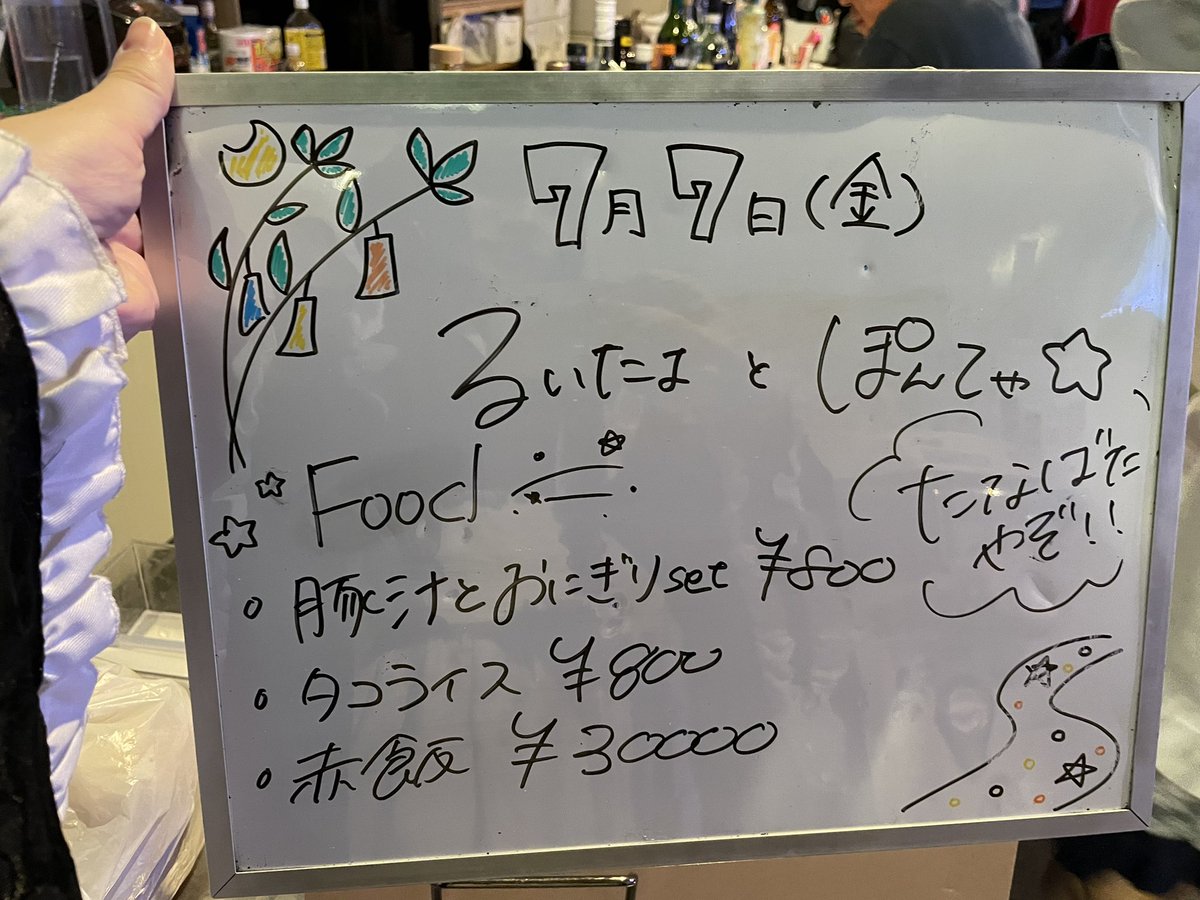 7月7日(金)
るいたまとぽんてゃ☆
Food
たてなばた
やぞ!!
・豚汁とおにぎりset ¥800
・タコライス ¥800
・赤飯 ¥30000